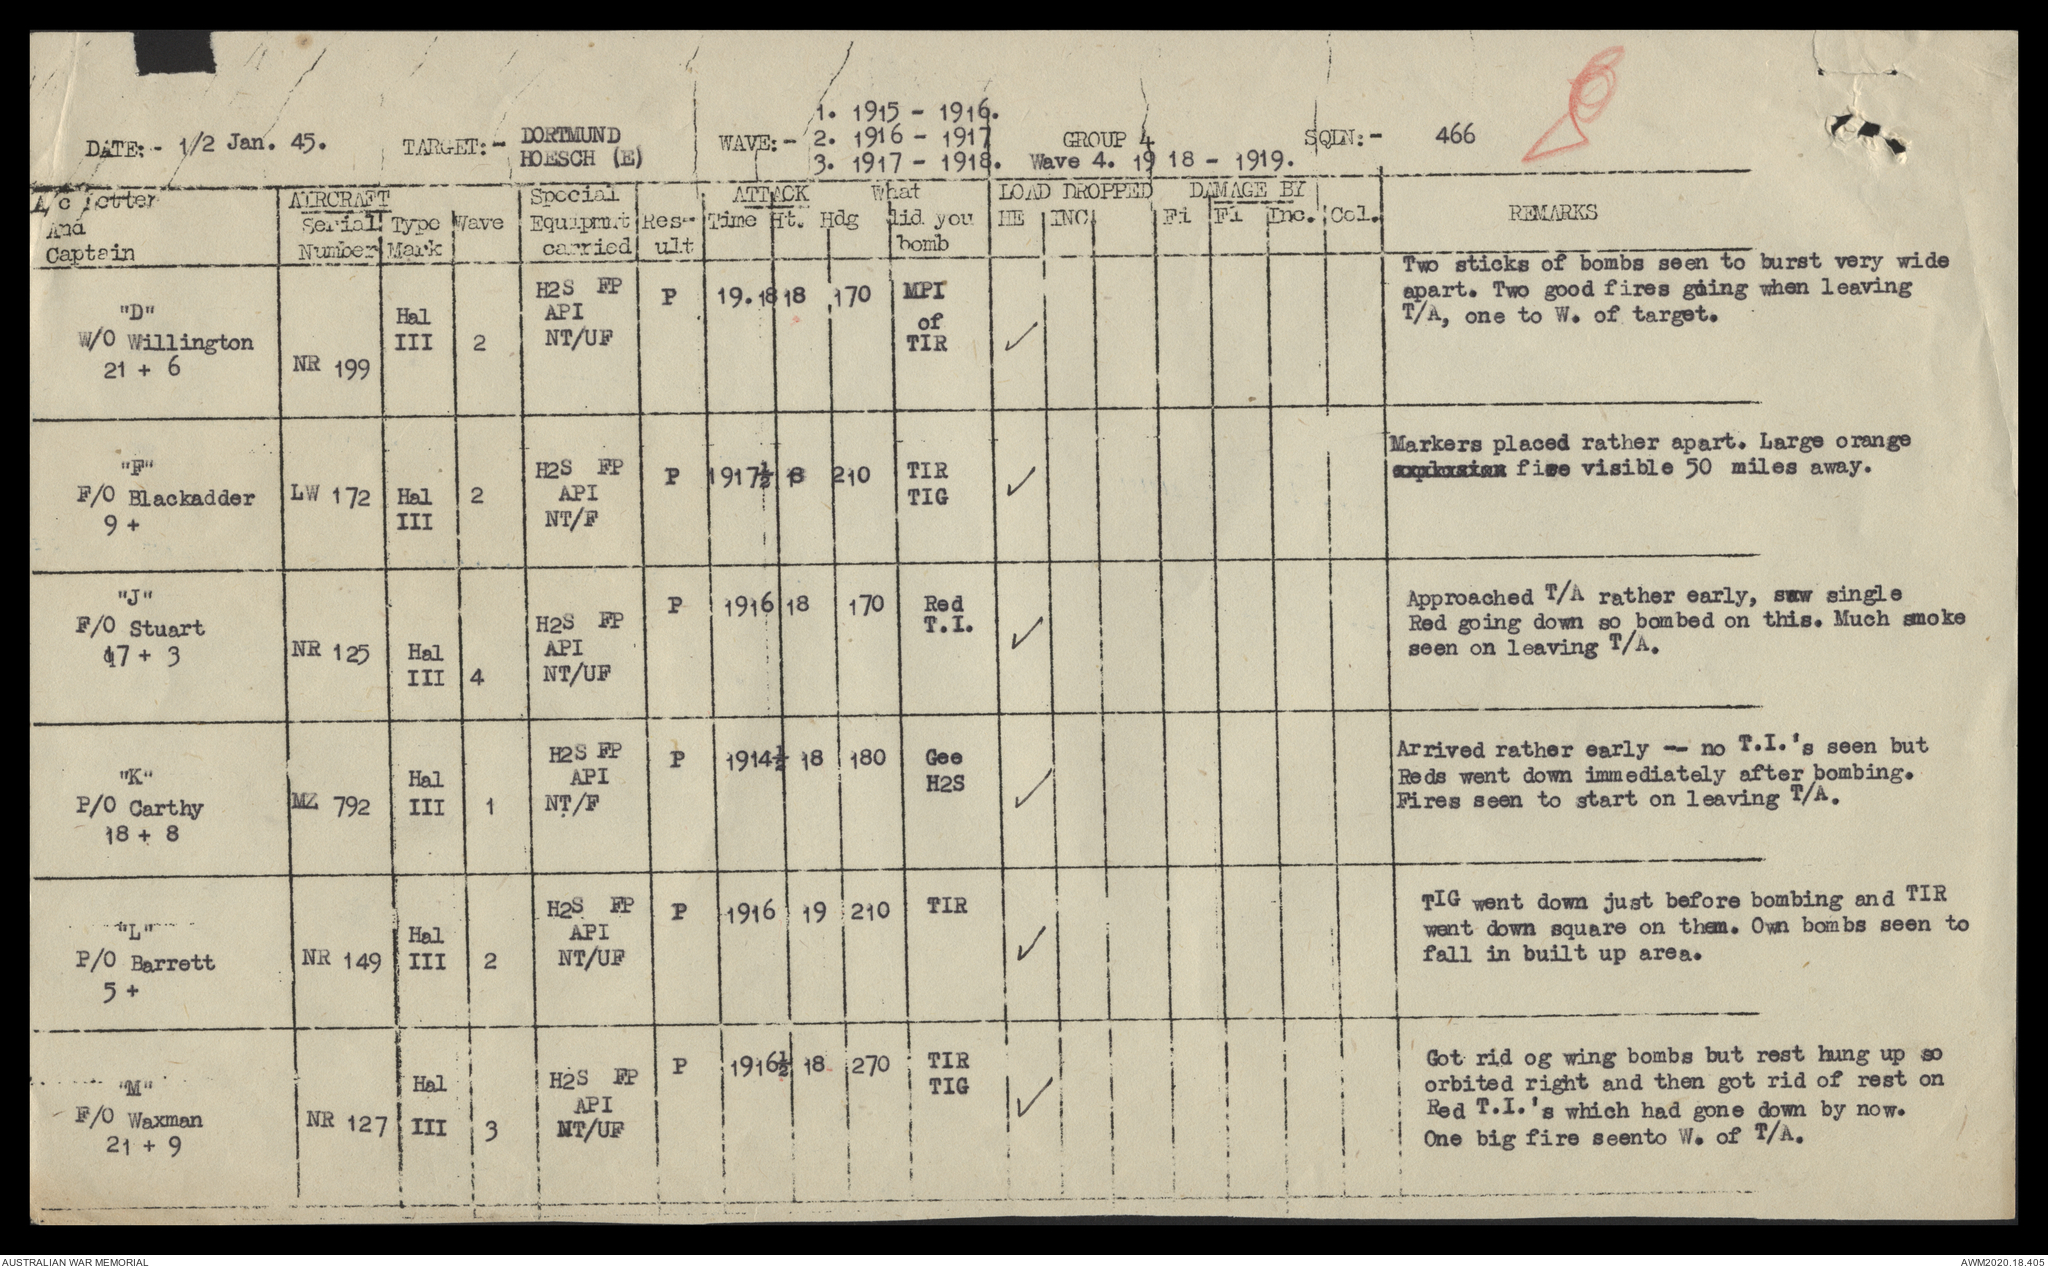 1. 1915 - 1916.
DATE:- 1/2 Jan. 45. TARGET:- DORTMUND WAVE:- 2. 1916 - 1917 GROUP 4 SQLN:- 466
HOESCH (E) 3. 1917 - 1918. Wave 4. 19 18 - 1919.
A/c letter AIRCRAFT Special ATTACK What LOAD DROPPED DAMAGE BY
And Serial Type Wave Equipmnt Res- Time Ht. Hdg did you HE INC Fi Fl Inc. Col. REMARKS
Captain Number Mark carried ult bomb
"D"
W/O Willington
21 + 6
NR 199
Hal
III
2
H2S FP
API
NT/UF
P
19.18 18 170
MPI
of
TIR
✓
Two sticks of bombs seen to burst very wide
apart. Two good fires going when leaving
T/A, one to W. of target.
"F"
F/O Blackadder
9 +
LW 172
Hal
III
2
H2S FP
API
NT/F
P
1917½ 18 210
TIR
TIG
✓
Markers placed rather apart. Large orange
explosion fire visible 50 miles away.
"J"
F/O Stuart
17 + 3
NR 125
Hal
III
4
H2S FP
API
NT/UF
P
1916 18 170
Red
T.I.
✓
Approached T/A rather early, saw single
Red going down so bombed on this. Much smoke
seen on leaving T/A.
"K"
P/O Carthy
18 + 8
MZ 792
Hal
III
1
H2S FP
API
NT/F
P
1914½ 18 180
Gee
H2S
✓
Arrived rather early - no T.I.'s seen but
Reds went down immediately after bombing.
Fires seen to start on leaving T/A.
"L"
P/O Barrett
5 +
NR 149
Hal
III
2
H2S FP
API
NT/UF
P
1916 19 210
TIR
✓
TIG went down just before bombing and TIR
went down square on them. Own bombs seen to
fall in built up area.
"M"
F/O Waxman
21 + 9
NR 127
Hal
III
3
H2S FP
API
NT/UF
P
1916½ 18 270
TIR
TIG
✓
Got rid og wing bombs but rest hung up so
orbited right and then got rid of rest on
Red T.I.'s which had gone down by now.
One big fire seento W. of T/A.
AUSTRALIAN WAR MEMORIAL
AWM2020.18.405